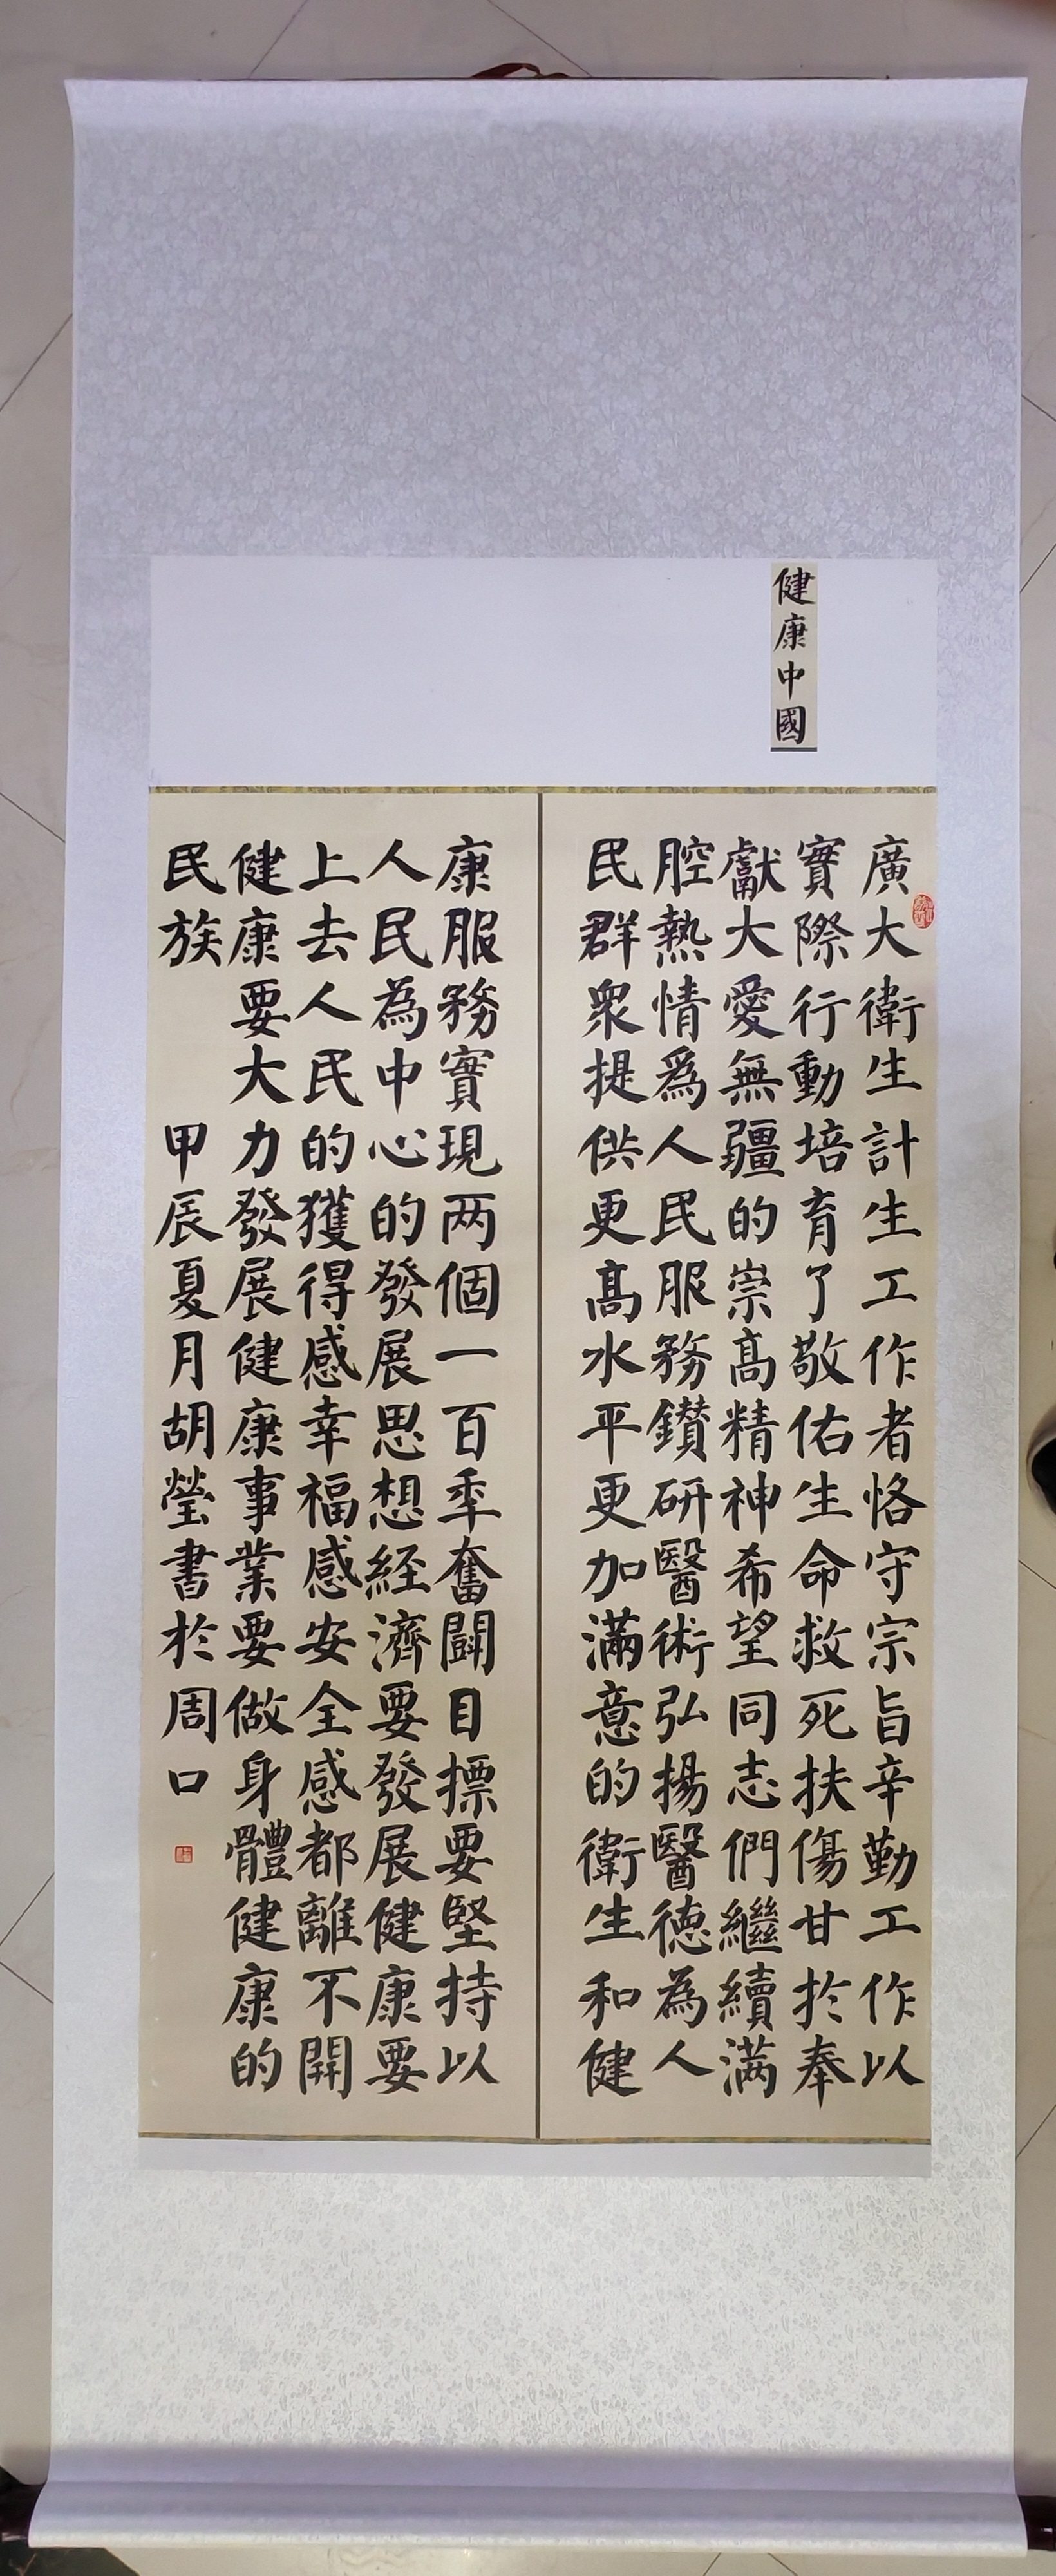 健康中國
廣大衛生計生工作者恪守宗旨辛勤工作以
實際行動培育了敬佑生命救死扶傷甘於奉
獻大愛無疆的崇高精神希望同志們繼續满
腔熱情爲人民服務鑽研醫術弘揚醫德為人
民群衆提供更高水平更加滿意的衛生和健
康服務實現两個一百秊奮鬪目摽要堅持以
人民為中心的發展思想経濟要發展健康要
上去人民的獲得感幸福感安全感都離不開
健康要大力發展健康事業要做身體健康的
民族 甲辰夏月胡瑩書於周口